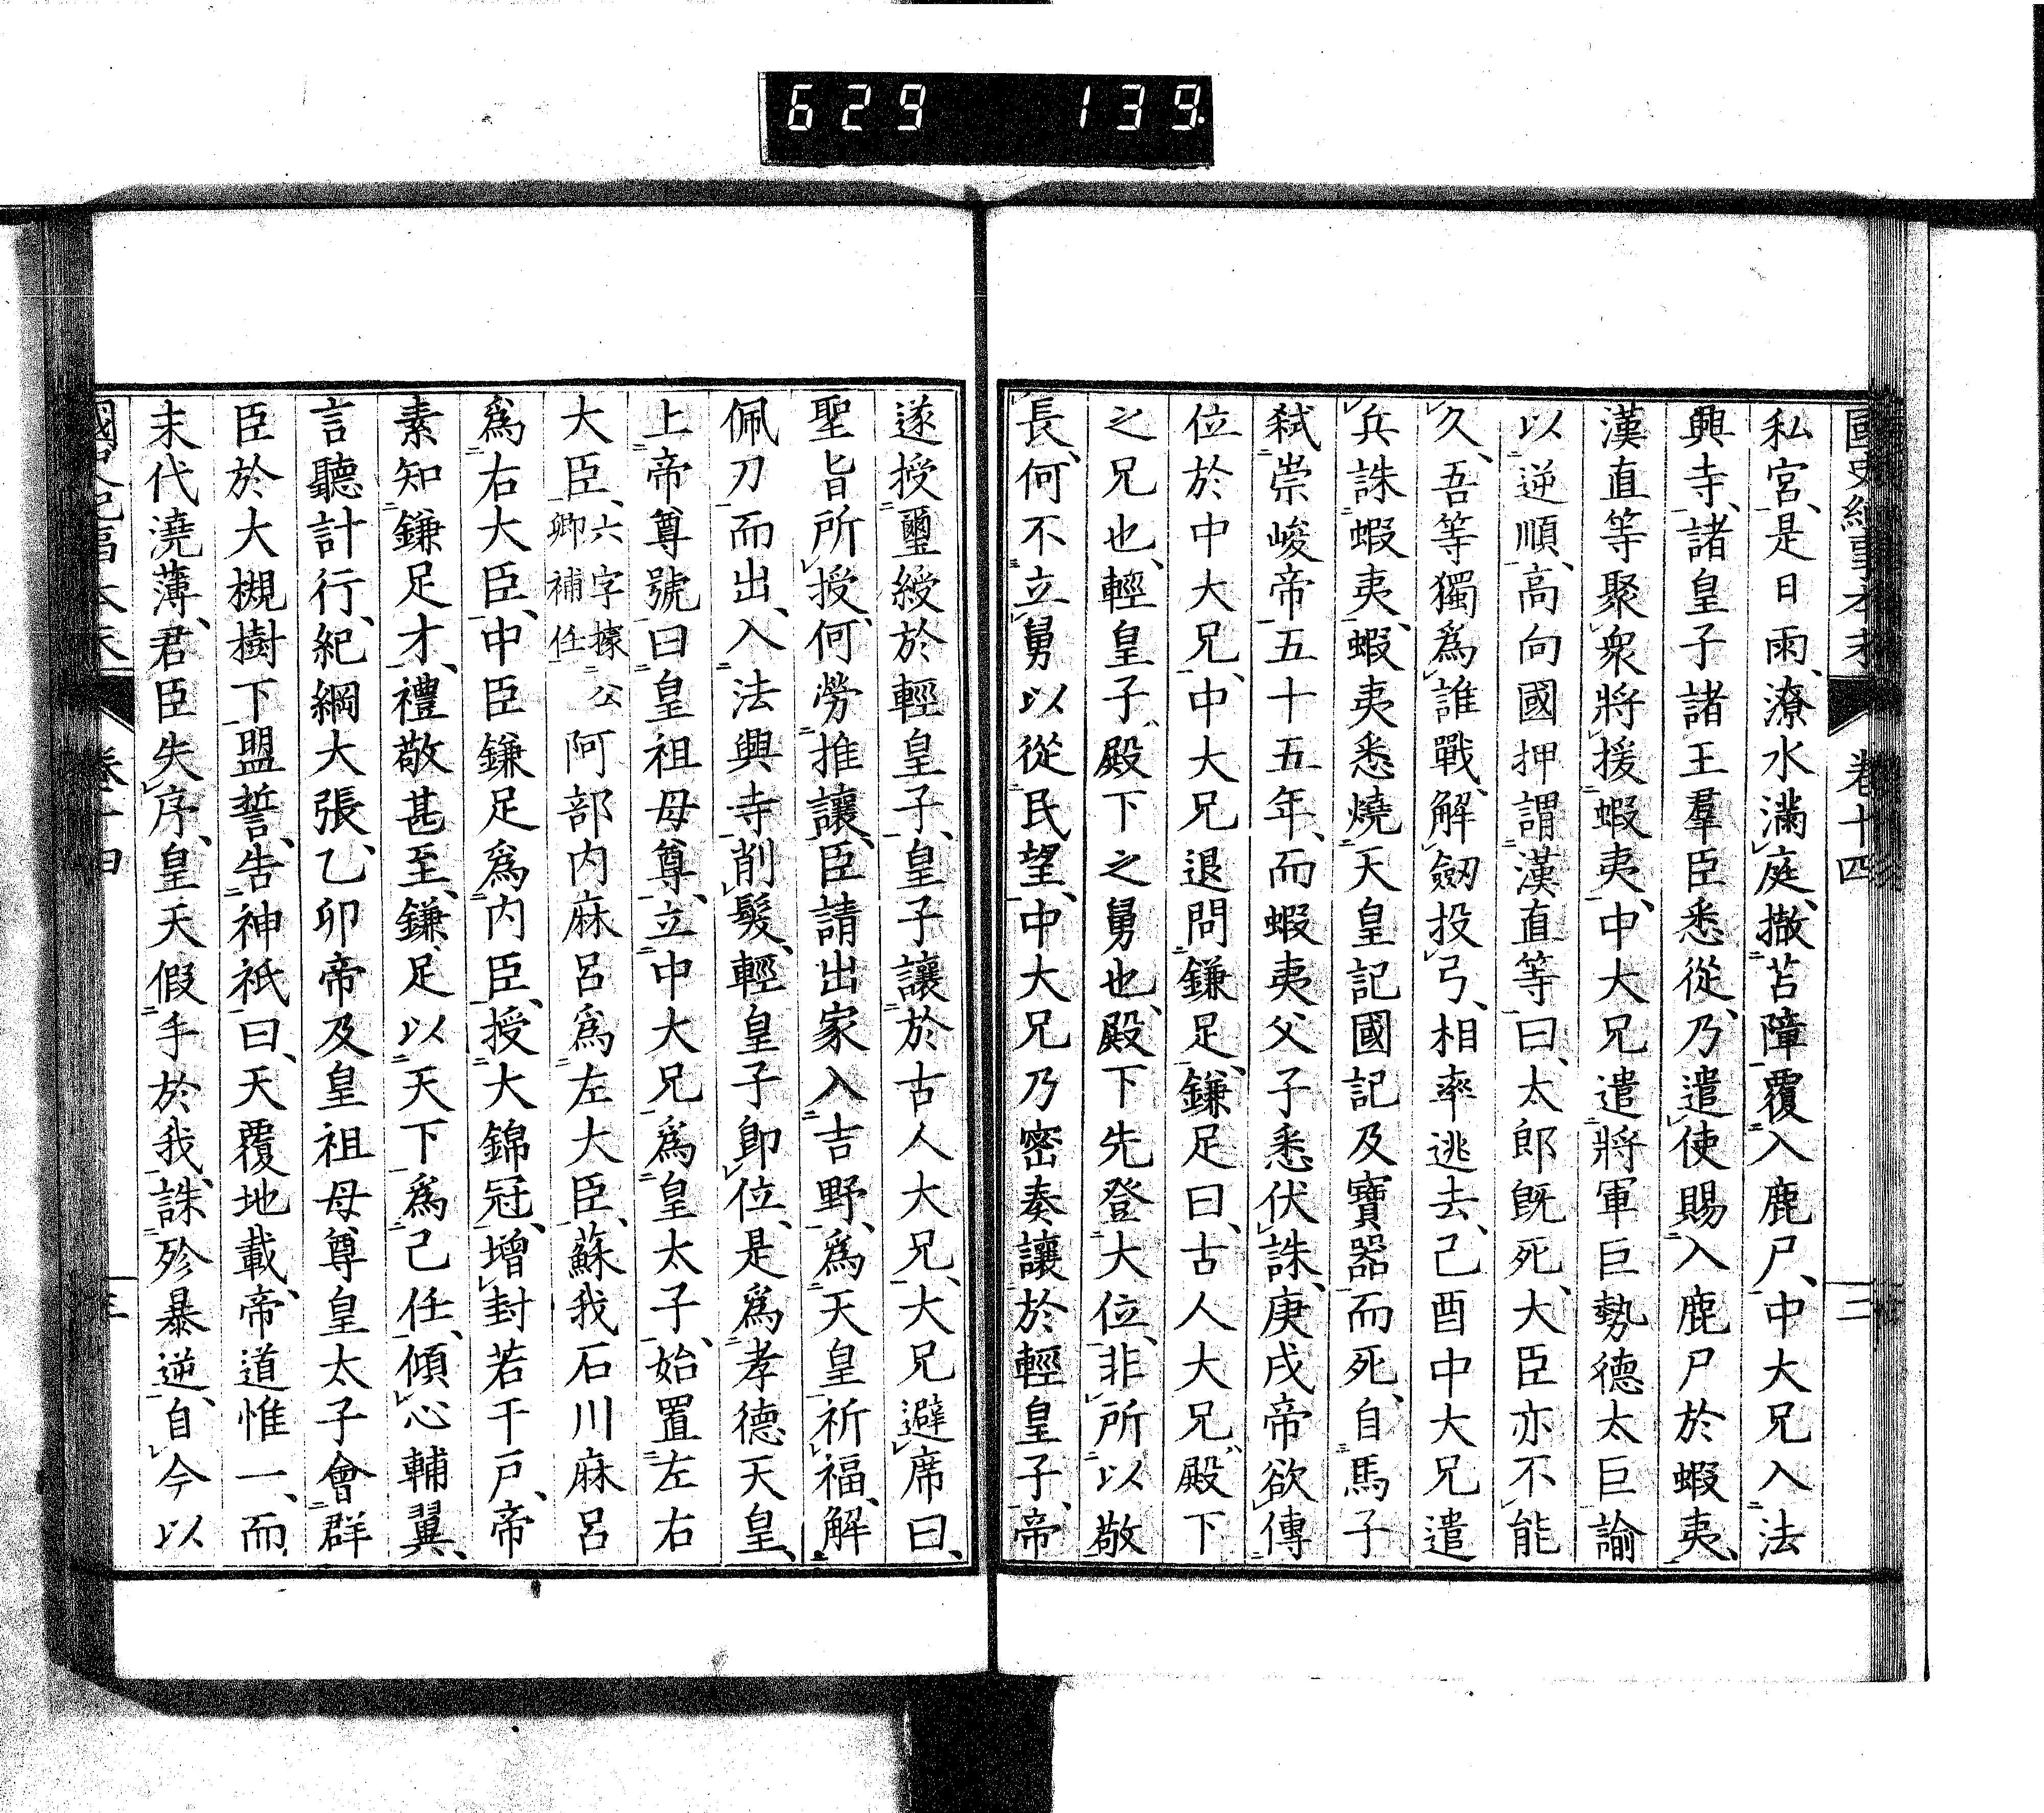 629 139
國史紀事本末 卷十四 二
私宮、是日雨、潦水滿庭、撤苫障覆入鹿尸、中大兄入法
興寺、諸皇子諸王羣臣悉從、乃遣使賜入鹿尸於蝦夷、
漢直等聚衆將援蝦夷、中大兄遣將軍巨勢德太巨諭
以逆順、高向國押謂漢直等曰、太郎既死、大臣亦不能
久、吾等獨爲誰戰、解劔投弓、相率逃去、己酉中大兄遣
兵誅蝦夷、蝦夷悉燒天皇記國記及寶器而死、自馬子
弑崇峻帝五十五年、而蝦夷父子悉伏誅、庚戌帝欲傳
位於中大兄、中大兄退問鎌足、鎌足曰、古人大兄殿下
之兄也、輕皇子殿下之舅也、殿下先登大位、非所以敬
長、何不立舅以從民望、中大兄乃密奏讓於輕皇子、帝
遂授璽綬於輕皇子、皇子讓於古人大兄、大兄避席曰、
聖旨所授、何勞推讓、臣請出家入吉野、爲天皇祈福、解
佩刀而出、入法興寺削髮、輕皇子卽位、是爲孝德天皇、
上帝尊號曰皇祖母尊、立中大兄爲皇太子、始置左右
大臣、六字據公卿補任阿部内麻呂爲左大臣、蘇我石川麻呂
爲右大臣、中臣鎌足爲内臣、授大錦冠、增封若干戸、帝
素知鎌足才、禮敬甚至、鎌足以天下爲己任、傾心輔翼、
言聽計行、紀綱大張、乙卯帝及皇祖母尊皇太子會群
臣於大槻樹下盟誓、告神祇曰、天覆地載、帝道惟一、而
末代澆薄、君臣失序、皇天假手於我、誅殄暴逆、自今以